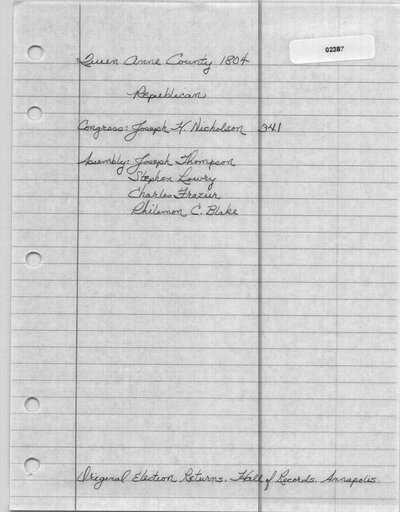 02387
Queen Anne County 1804
Republican
Congress: Joseph H. Nicholson 341
Assembly: Joseph Thompson
Stephen Lowry
Charles Frazier
Philemon C. Blake
Original Election Returns. Hall of Records. Annapolis